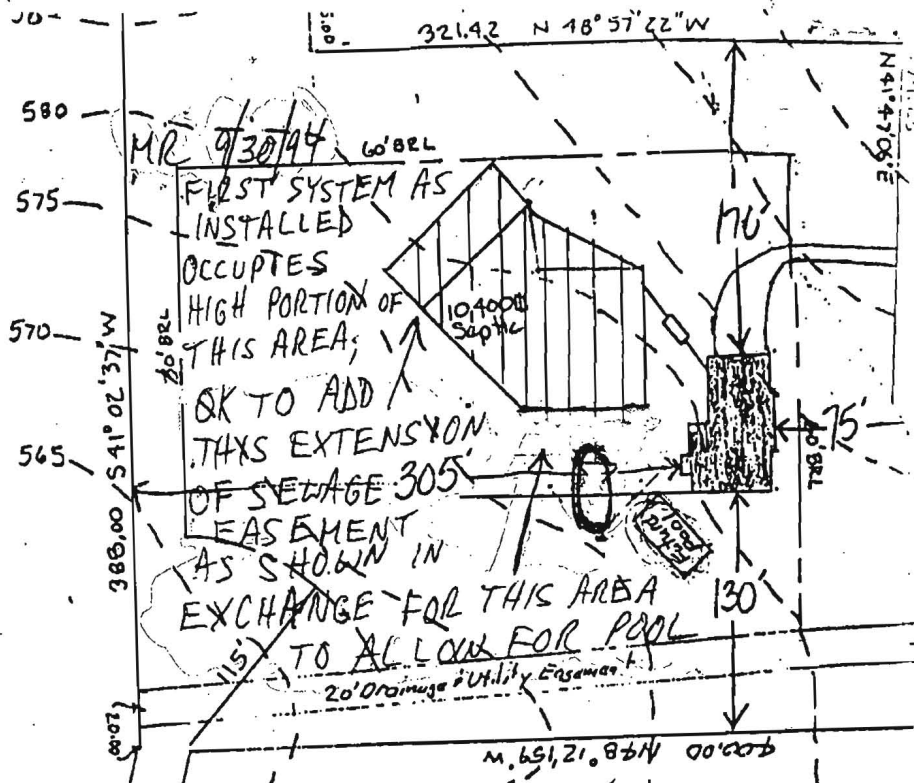 321.42 N 48° 57' 22" W
N 41° 47' 06" E
580
MR 9/30/94
60' BRL
575
FIRST SYSTEM AS
INSTALLED
OCCUPIES
HIGH PORTION OF
THIS AREA;
OK TO ADD
THIS EXTENSION
OF SEWAGE
EASEMENT
AS SHOWN IN
EXCHANGE FOR THIS AREA
TO ALLOW FOR POOL
10,400
Septic
570
565
388.00 S 41° 02' 37" W
BRL
305'
75'
BRL
Future
Pool
130'
115'
20' Drainage & Utility Easement
20.00
400.00 N 48° 12' 59" W